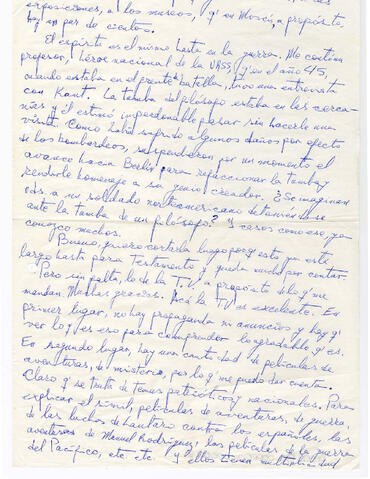 exposiciones, a los museos, q' en Moscú, a propósito,
hay un par de cientos.
El espíritu es el mismo hasta en la guerra. Me contaba
profesor, Héroe nacional de la URSS, q' en el año 45,
cuando estaba en el frente batalla, tuvo una entrevista
con Kant. La tumba del filósofo estaba en las cerca-
nías y él estimó imperdonable pasar sin hacerle una
visita. Como había sufrido algunos daños por efecto
de los bombardeos, suspendieron por un momento el
avance hacia Berlín para refaccionar la tumba y
rendirle homenaje a su genio creador. ¿Se imaginan
Uds. a un soldado norteamericano detenerse
ante la tumba de un filósofo? Y casos como ese yo
conozco muchos.
Bueno, quiero cortarla luego porq' esto ya está
largo hasta para testamento y queda mucho por contar.
Pero sin falta, lo de la T.V, a propósito de lo q' me
mandan. Muchas gracias. Acá la TV es excelente. En
primer lugar, no hay propaganda ni anuncios y hay q'
ver lo q' es eso para comprender lo agradable q' es.
En segundo lugar, hay una cantidad de películas de
aventuras, de misterio, por lo q' me puedo dar cuenta.
Claro q' se trata de temas patrióticos y nacionales. Para
explicar el símil, películas de aventuras, de guerra,
de las luchas de Lautaro contra los españoles, las
aventuras de Manuel Rodríguez, las películas de la guerra
del Pacífico, etc. etc. y ellos tienen multiplicidad